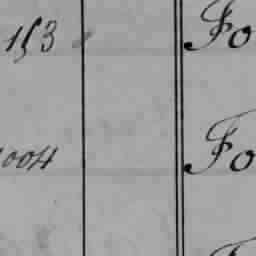 153 Fo
004 Fo